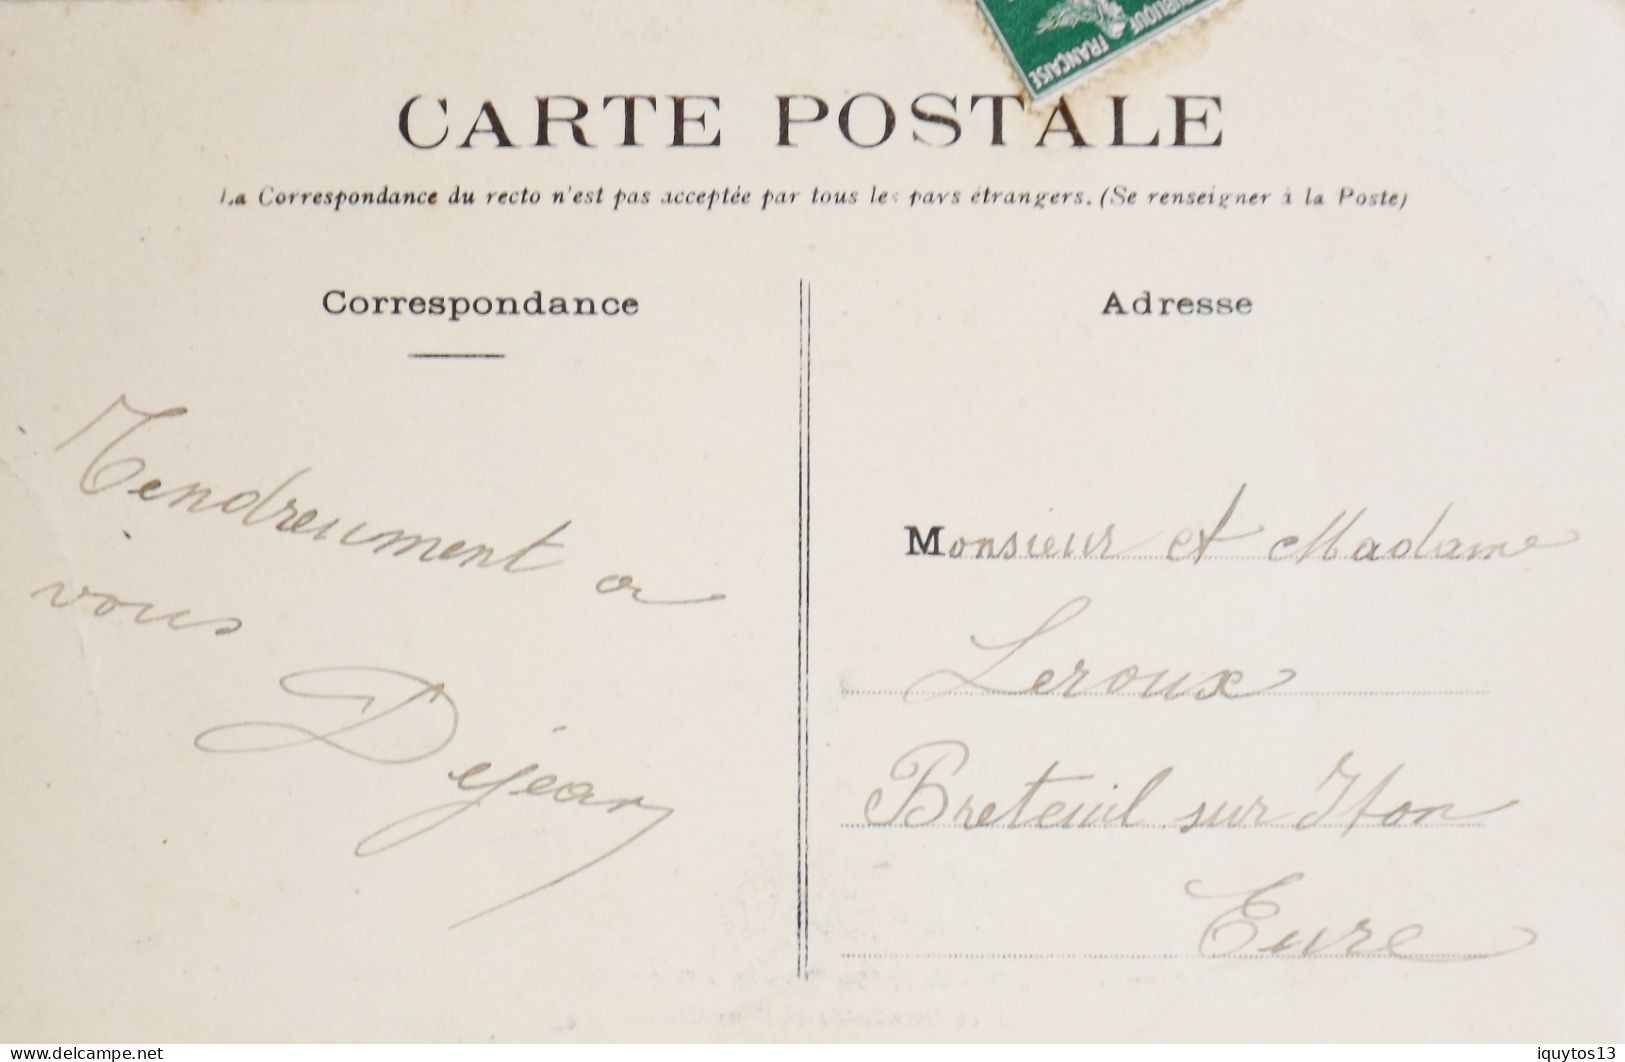 RÉPUBLIQUE FRANÇAISE
CARTE POSTALE
La Correspondance du recto n'est pas acceptée par tous les pays étrangers. (Se renseigner à la Poste)
Correspondance
Adresse
Tendreument a
vous
Déjean
Monsieur et Madame
Leroux
Breteuil sur Iton
Eure
delcampe.net
iquytos13